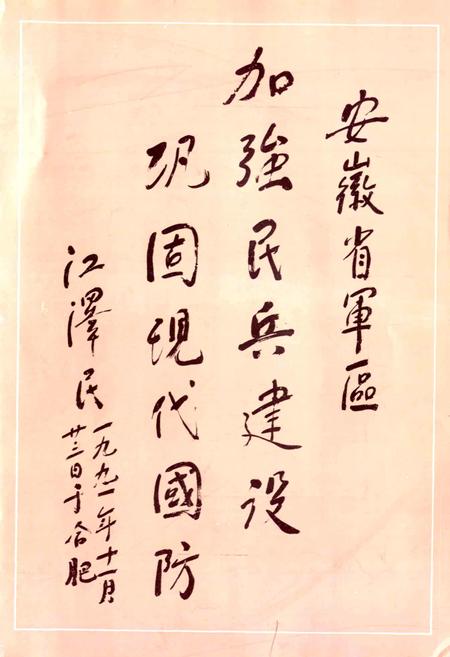 安徽省軍區
加強民兵建設
巩固現代國防
江澤民
一九九一年十一月
廿三日于合肥